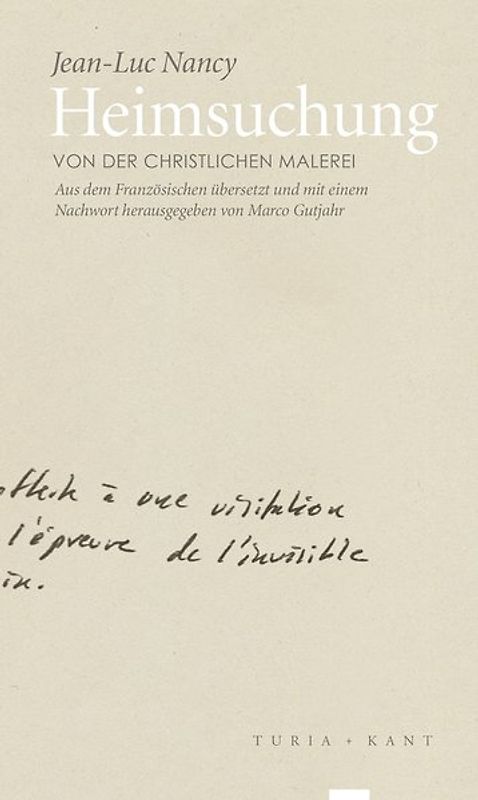 Jean-Luc Nancy
Heimsuchung
VON DER CHRISTLICHEN MALEREI
Aus dem Französischen übersetzt und mit einem
Nachwort herausgegeben von Marco Gutjahr
à une visitation
l'épreuve de l'invisible
TURIA + KANT